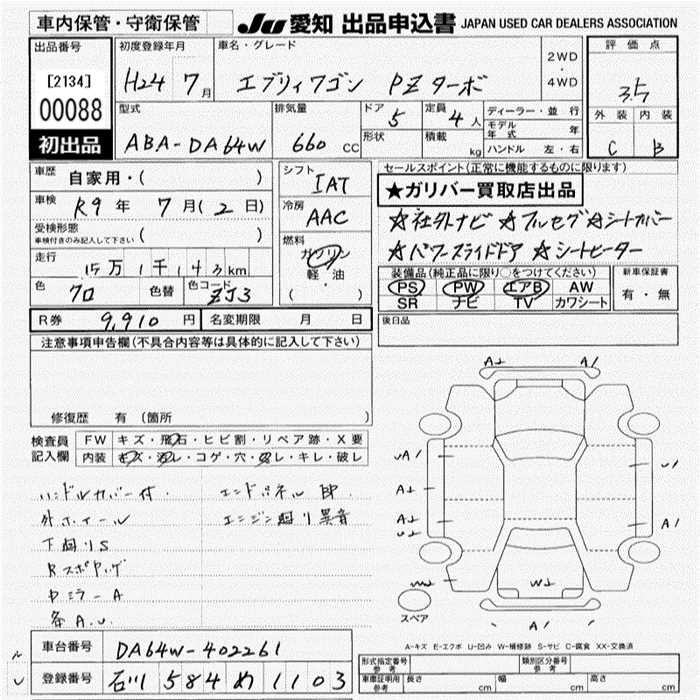 車内保管・守衛保管
JU 愛知 出品申込書 JAPAN USED CAR DEALERS ASSOCIATION
出品番号
[2134]
00088
初出品
初度登録年月
H24 7月
車名・グレード
エブリィワゴン PZターボ
2WD
・
4WD
評価点
3.5
外装 内装
C B
型式
ABA-DA64W
排気量
660 cc
ドア
5
形状
定員
4人
積載
kg
ディーラー・並行
モデル年式 年
ハンドル 左・右
車歴
自家用・( )
車検
R9年 7月(2日)
受検形態
車検付きのみ記入して下さい ( )
走行
15万1千143km
色
クロ
色替
色コード
ZJ3
シフト
IAT
冷房
AAC
燃料
ガソリン
軽・油
( ・ )
セールスポイント(正常に機能するものに限ります)
★ガリバー買取店出品
☆社外ナビ ☆フルセグ ☆シートカバー
☆パワースライドドア ☆シートヒーター
装備品(純正品に限り○をつけてください)
PS PW エアB AW
SR ナビ TV カワシート
新車保証書
有・無
R券 9,910円
名変期限 月 日
後日品
注意事項申告欄(不具合内容等は具体的に記入して下さい)
修復歴 有 (箇所
検査員
記入欄
FW キズ・飛石・ヒビ割・リペア跡・X要
内装 キズ・汚レ・コゲ・穴・スレ・キレ・破レ
ハンドルカバー付
外ホイール
下廻りS
エンドパネル
エンジン廻り異音
A A1
UA1
A
A
U
U1
A1
W
A1
スペア
A-キズ E-エクボ U-凹み W-補修跡 S-サビ C-腐食 XX-交換済
車台番号 DA64W-402261
登録番号 石川 584 め 1103
形式指定番号
参考
類別区分番号
参考
車庫証明用
参考
長さ cm 幅 cm 高さ cm